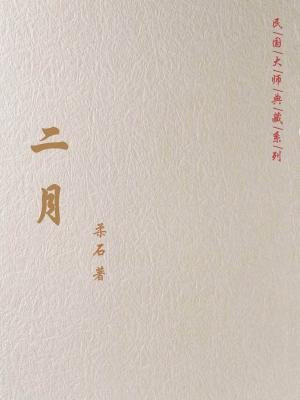 民国大师典藏系列
二月
柔石 著